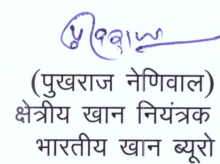 (पुखराज नेणिवाल)
क्षेत्रीय खान नियंत्रक
भारतीय खान ब्यूरो